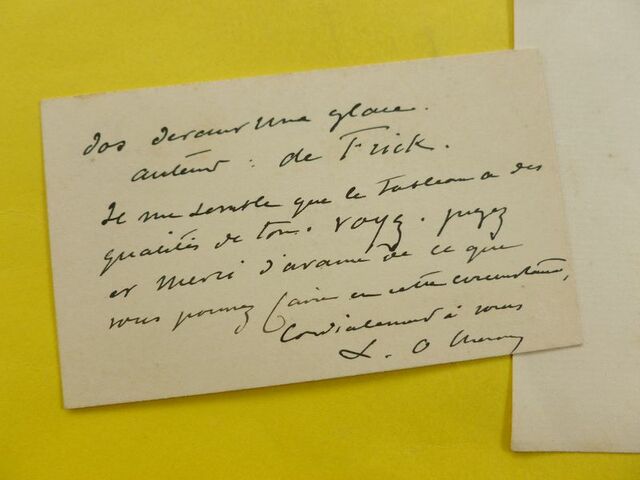 dos devant une glace.
auteur : de Frick.
Il me semble que le tableau a des
qualités de ton. voyez. jugez
et merci d'avance de ce que
vous pouvez faire en cette circonstance,
Cordialement à vous
L. O